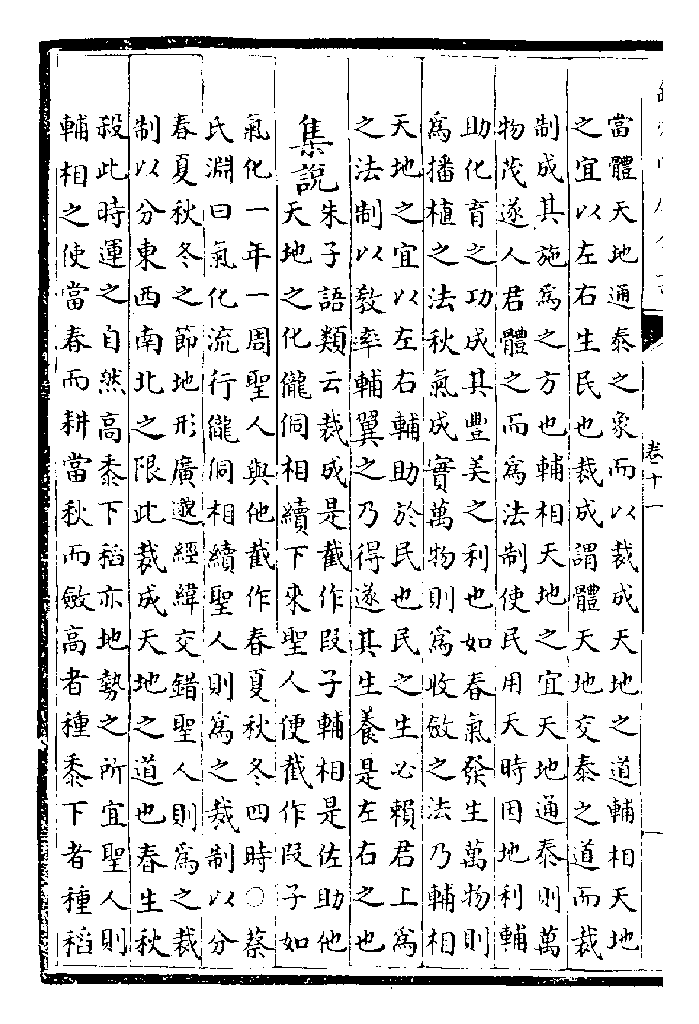 卷十一
一
當體天地通泰之象而以裁成天地之道輔相天地
之宜以左右生民也裁成謂體天地交泰之道而裁
制成其施為之方也輔相天地之宜天地通泰則萬
物茂遂人君體之而為法制使民用天時因地利輔
助化育之功成其豐美之利也如春氣發生萬物則
為播植之法秋氣成實萬物則為收斂之法乃輔相
天地之宜以左右輔助於民也民之生必賴君上為
之法制以敎率輔翼之乃得遂其生養是左右之也
集說
朱子語類云裁成是截作段子輔相是佐助他
天地之化儱侗相續下來聖人便截作段子如
氣化一年一周聖人與他截作春夏秋冬四時○蔡
氏淵曰氣化流行儱侗相續聖人則為之裁制以分
春夏秋冬之節地形廣邈經緯交錯聖人則為之裁
制以分東西南北之限此裁成天地之道也春生秋
殺此時運之自然高黍下稻亦地勢之所宜聖人則
輔相之使當春而耕當秋而斂高者種黍下者種稻